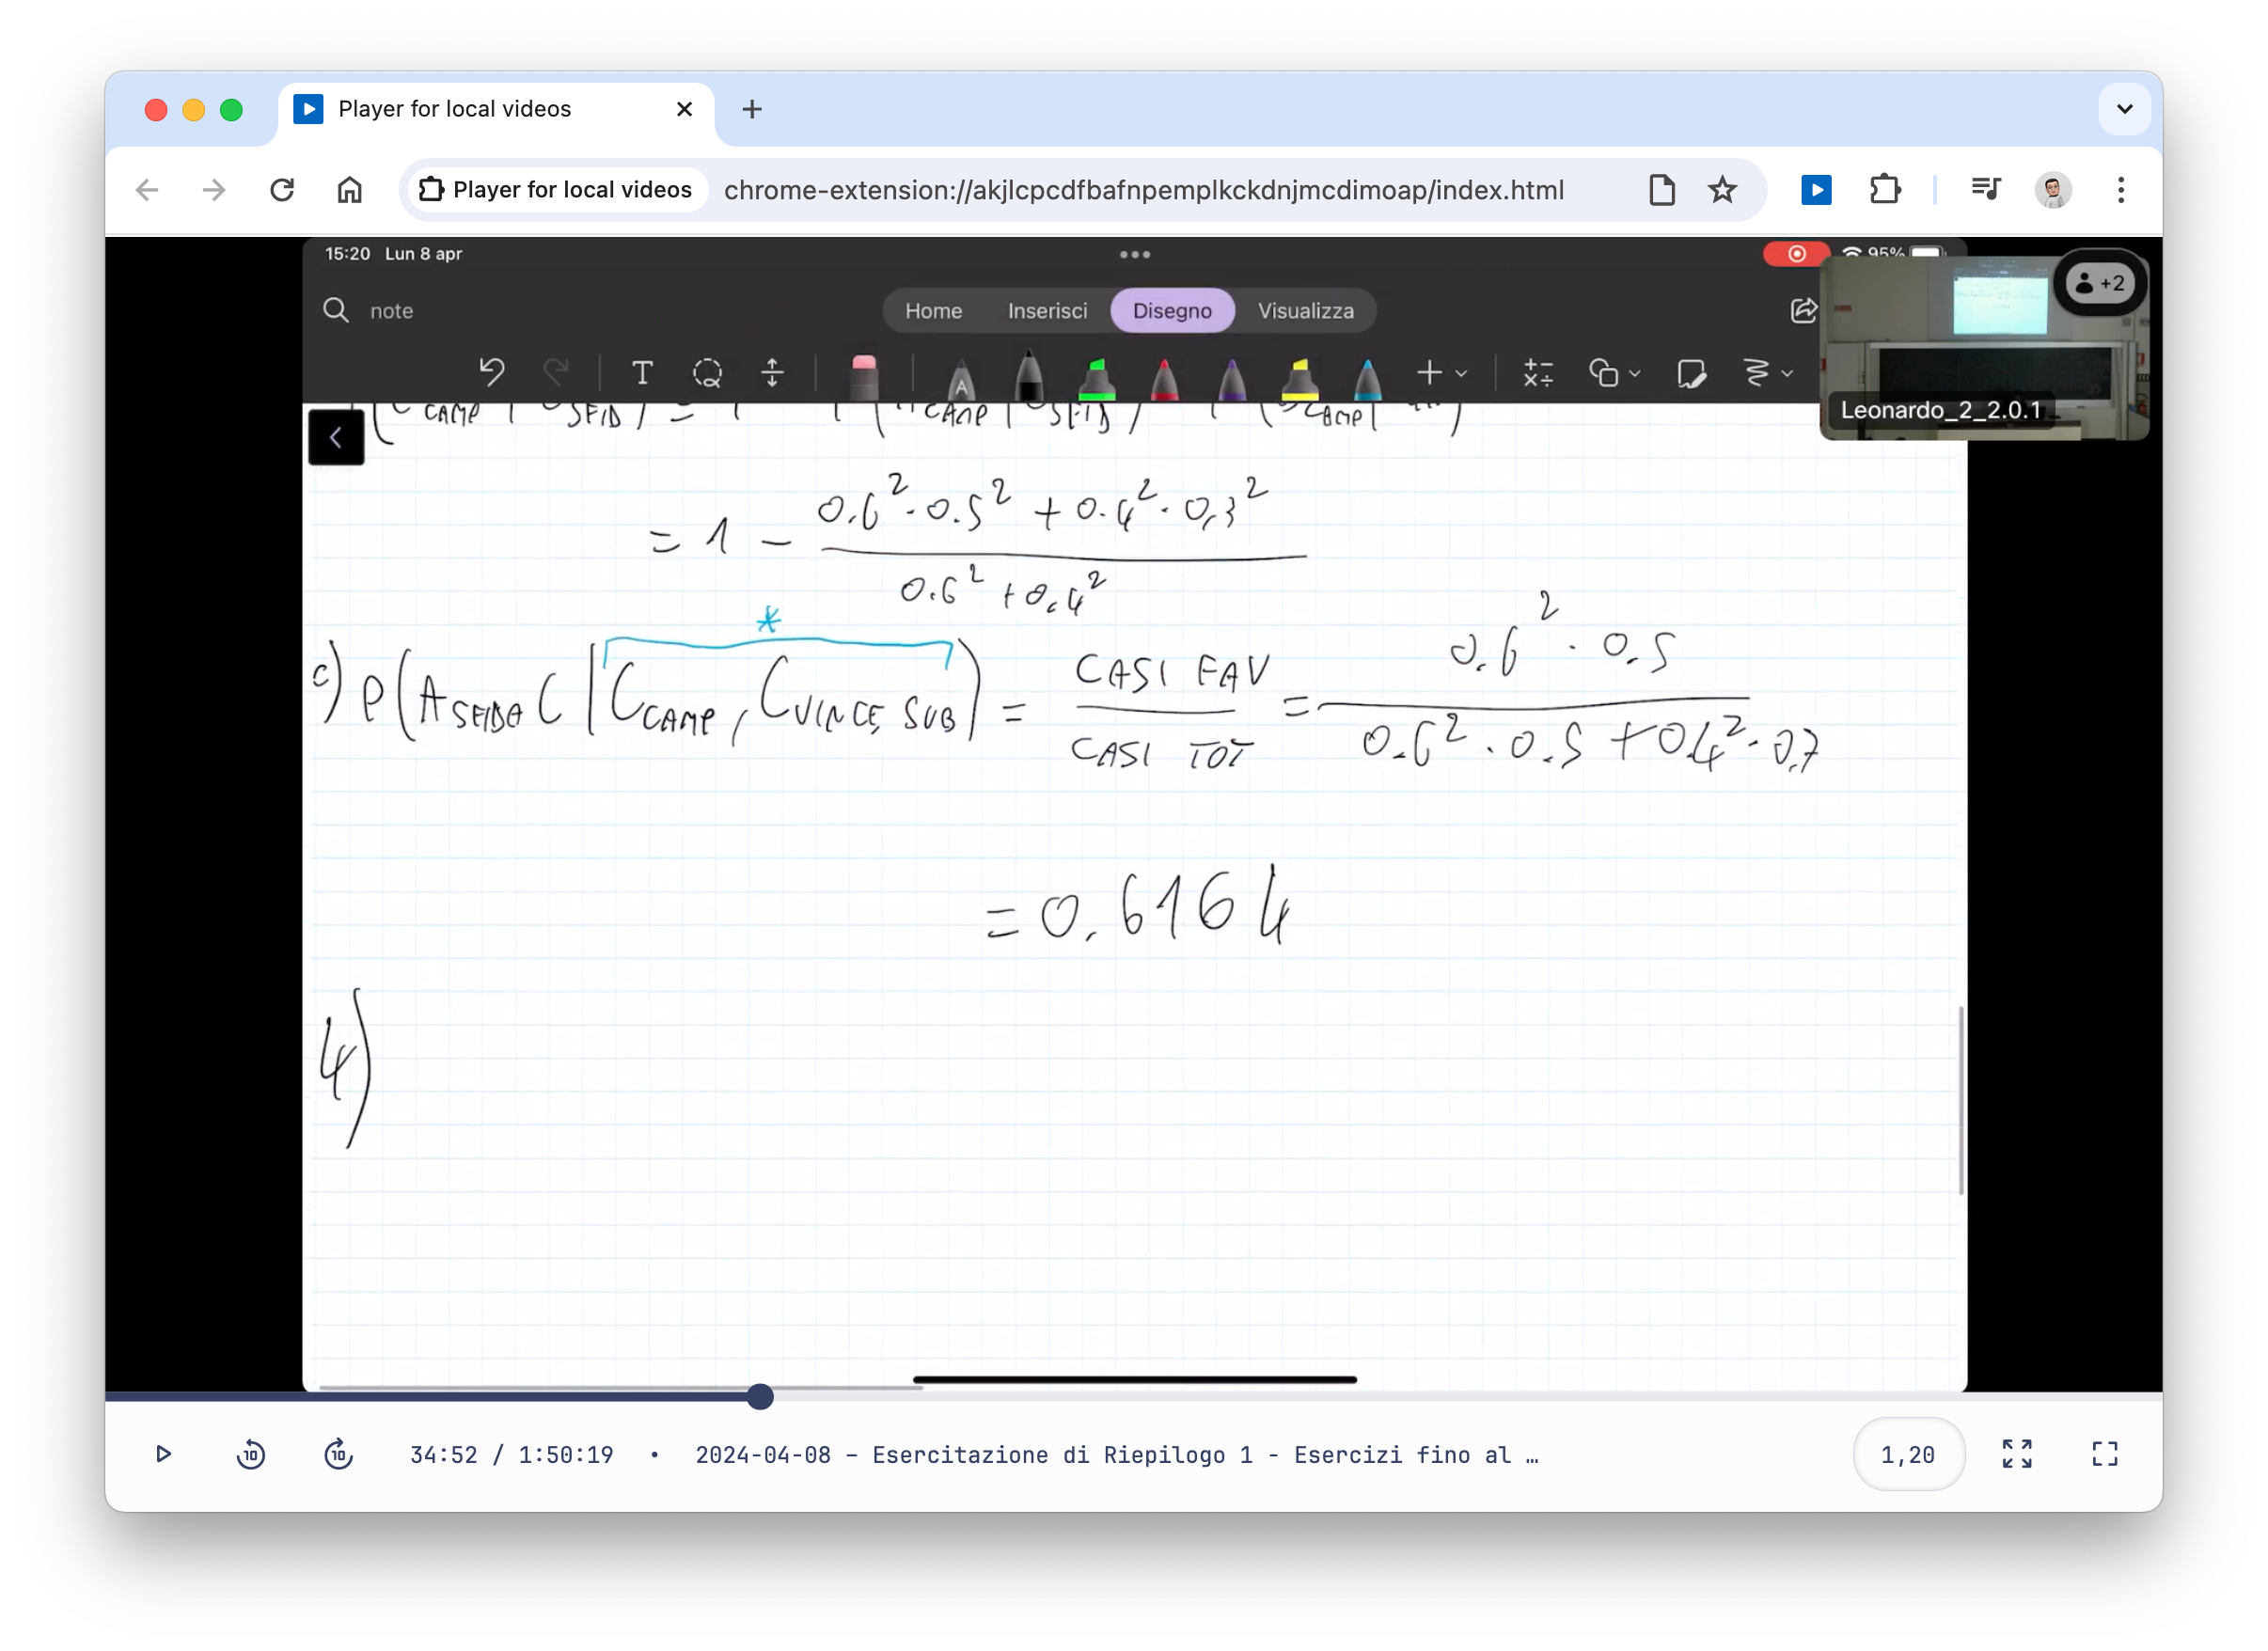 Player for local videos
Player for local videos chrome-extension://akjlcpcdfbafnpemplkckdnjmcdimoap/index.html
15:20 Lun 8 apr
95%
+2
note
Home Inserisci Disegno Visualizza
T A
Leonardo_2_2.0.1
CAMP | SFID) = 1 CAMP | SFID) CAMP|
= 1 - (0.6² · 0.5² + 0.4² · 0.3²) / (0.6² + 0.4²)
*
c) P(A SFIDA C | C CAMP, C VINCE, SUB) = CASI FAV / CASI TOT = (0.6² · 0.5) / (0.6² · 0.5 + 0.4² · 0.7)
= 0.6164
4)
10 10 34:52 / 1:50:19 • 2024-04-08 – Esercitazione di Riepilogo 1 - Esercizi fino al …
1,20